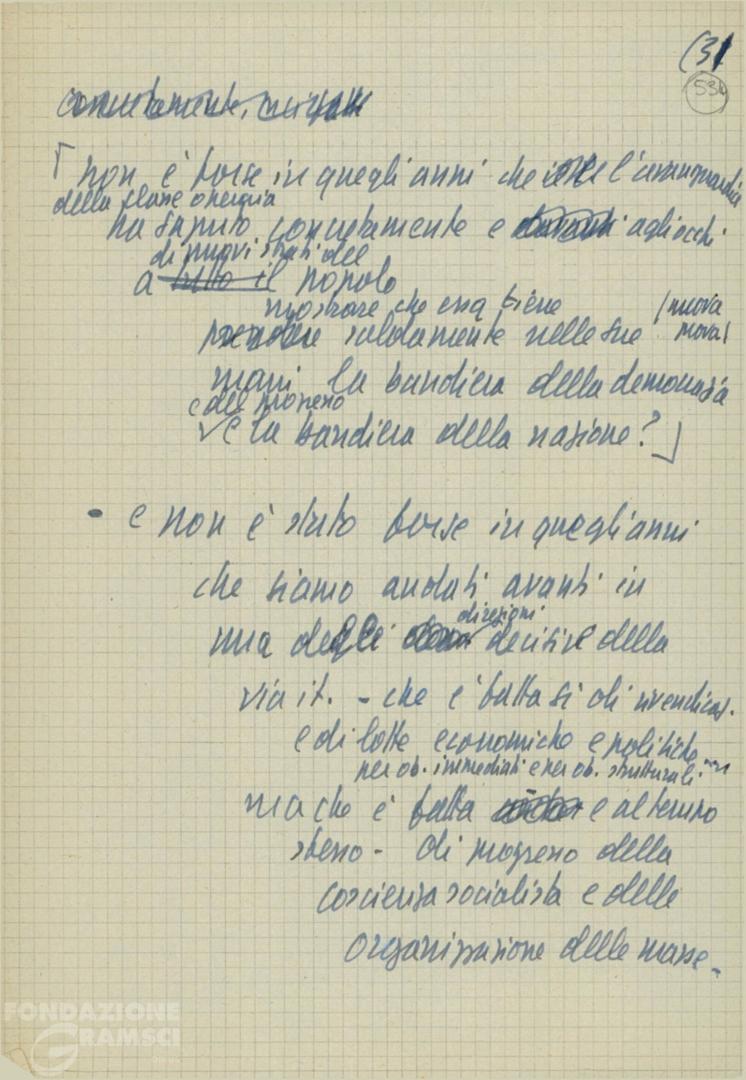 (31
534
concretamente,
[non è forse in quegli anni che l'avanguardia
della classe operaia
ha saputo concretamente e agli occhi
di nuovi strati del
a tutto il popolo
mostrare che essa tiene
prendere saldamente nelle sue (nuova
prova)
mani la bandiera della democrazia
e del progresso
e la bandiera della nazione?]
• e non è stato forse in quegli anni
che siamo andati avanti in
una delle direzioni
decisive della
via it. - che è fatta sì di rivendicaz.
e di lotte economiche e politiche
per ob. immediati e per ob. strutturali
ma che è fatta e al tempo
stesso - di progresso della
coscienza socialista e delle
organizzazione delle masse -
FONDAZIONE
GRAMSCI